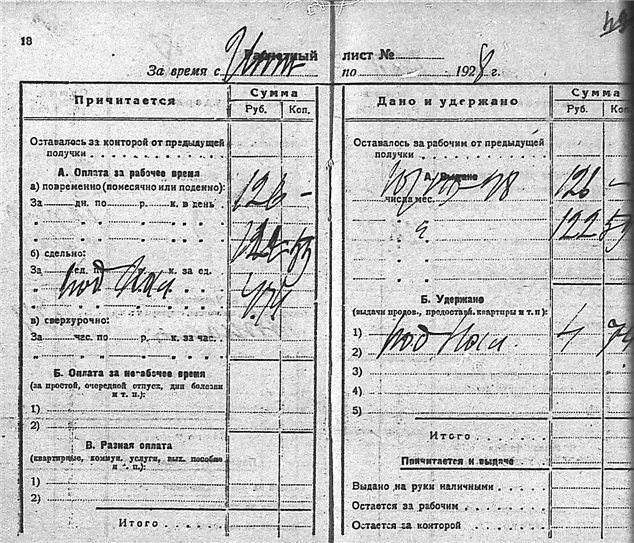 13
Расчетный лист №
За время с по 1928 г.
Причитается
Сумма
Руб. Коп.
Оставалось за конторой от предыдущей
получки
А. Оплата за рабочее время
а) повременно (помесячно или поденно):
За дн. по р. к. в день
126 —
б) сдельно:
За ед. п. к. за ед.
под
в) сверхурочно:
За час. по р. к. за час.
Б. Оплата за нерабочее время
(за простой, очередной отпуск, дни болезни
и т. п.):
1)
2)
В. Разная оплата
(квартирные, коммун. услуги, вых. пособие
и т. п.):
1)
2)
Итого
Дано и удержано
Сумма
Руб. Коп.
Оставалось за рабочим от предыдущей
получки
А. Выдано
числа мес.
126 —
122 59
Б. Удержано
(выдачи продов., предоставл. квартиры и т. п.):
1)
2) под
4 74
3)
4)
5)
Итого
Причитается к выдаче
Выдано на руки наличными
Остается за рабочим
Остается за конторой